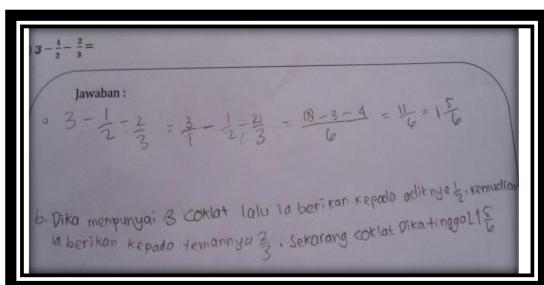 3 - 1/2 - 2/3 =
Jawaban :
3 - 1/2 - 2/3 = 3/1 - 1/2 - 2/3 = 18-3-4/6 = 11/6 = 1 5/6
b. Dika menpunyai 3 coklat lalu ia berikan kepada adiknya 1/2, kemudian
ia berikan kepada temannya 2/3. Sekarang coklat Dika tinggal 1 5/6